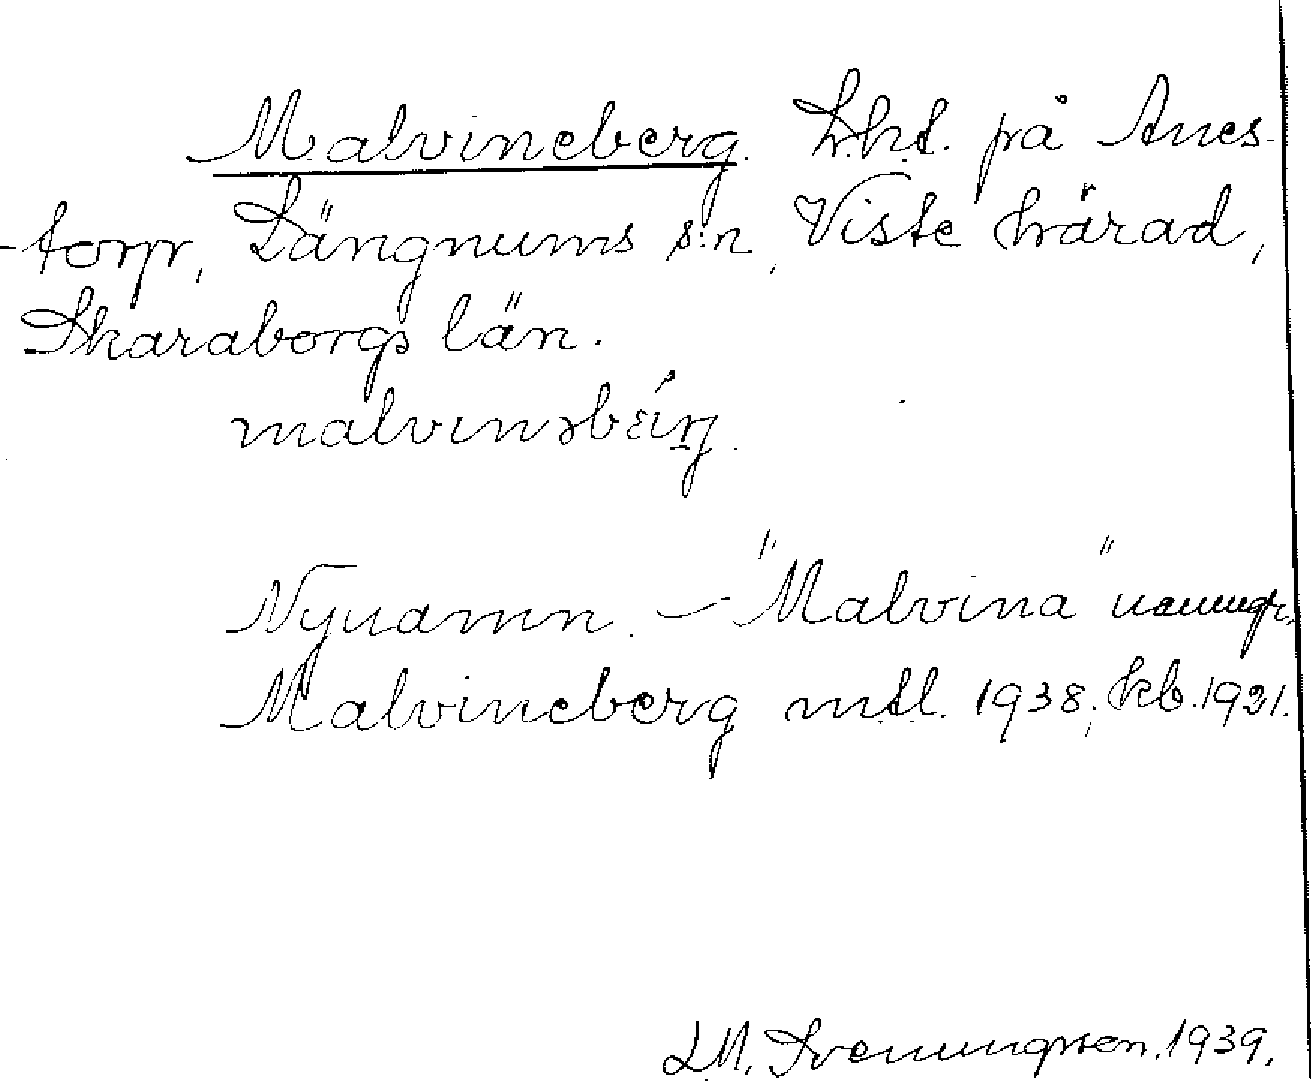 Malvineberg. Lht. på Anes-
-torp, Längnums s:n, Viste härad,
Skaraborgs län.
malvinəbɛ́rj.
Nynamn. – "Malvina"
Malvineberg mtl. 1938; kb. 1921.
L.M. Svenungsson. 1939.